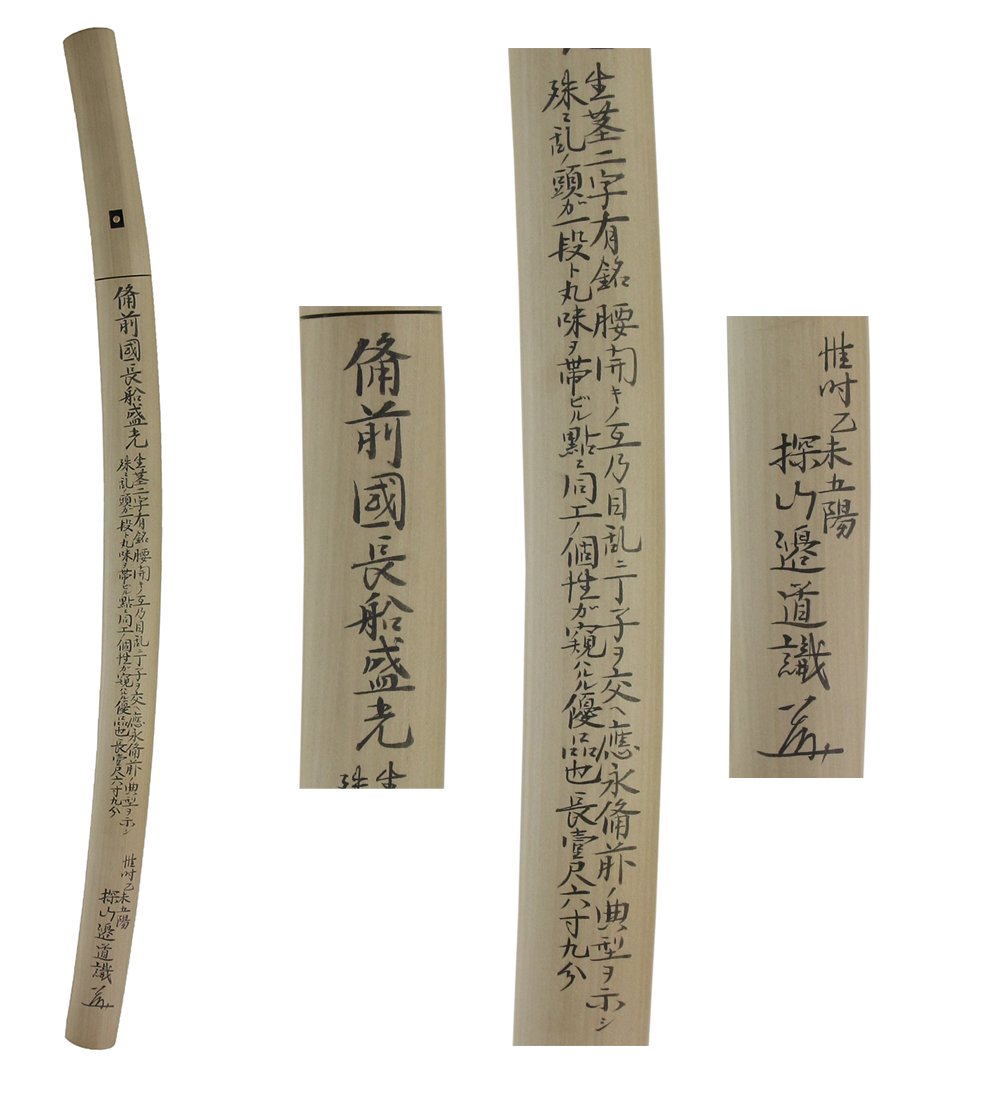 備前國長船盛光
生茎二字有銘腰開キノ互乃目乱ニ丁子ヲ交ヘ應永備前ノ典型ヲ示シ
殊ニ乱ノ頭ガ一段ト丸味ヲ帯ビル點ニ同工ノ個性ガ窺ハルル優品也長壹尺六寸九分
惟時乙未五陽
探山邉道識
備前國長船盛光
生
殊
生茎二字有銘腰開キノ互乃目乱ニ丁子ヲ交ヘ應永備前ノ典型ヲ示シ
殊ニ乱ノ頭ガ一段ト丸味ヲ帯ビル點ニ同工ノ個性ガ窺ハルル優品也長壹尺六寸九分
惟時乙未五陽
探山邉道識